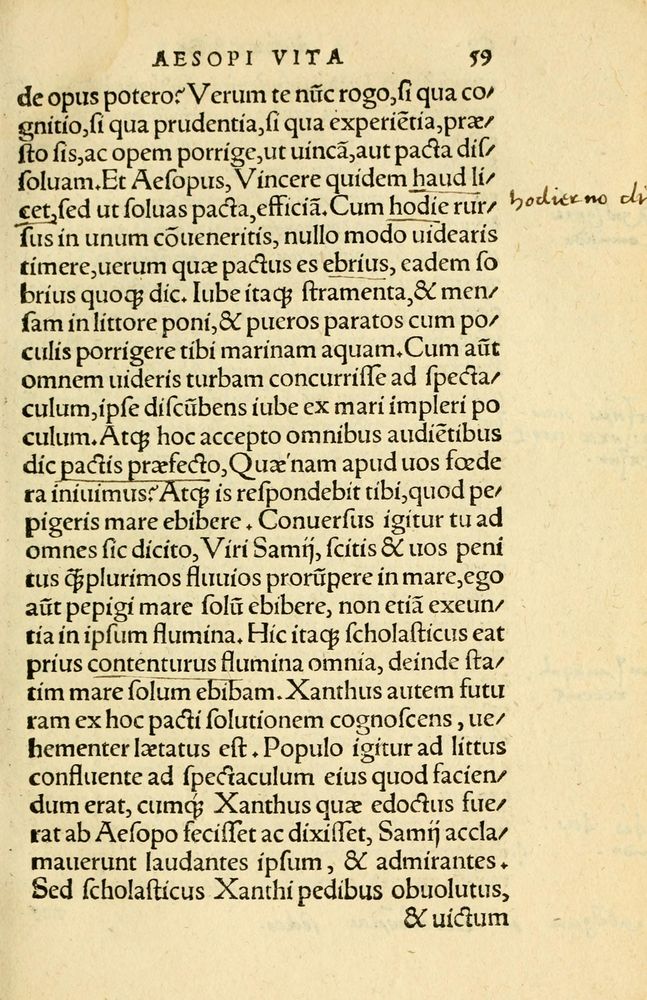 AESOPI VITA 59
de opus potero? Verum te nūc rogo, ſi qua co/
gnitio, ſi qua prudentia, ſi qua experiētia, præ/
ſto ſis, ac opem porrige, ut uincā, aut pacta diſ/
ſoluam. Et Aeſopus, Vincere quidem haud li/
cet, ſed ut ſoluas pacta, efficiā. Cum hodie rur/
hodierno di
ſus in unum cōueneritis, nullo modo uidearis
timere, uerum quæ pactus es ebrius, eadem ſo
brius quoq; dic. Iube itaq; ſtramenta, & men/
ſam in littore poni, & pueros paratos cum po/
culis porrigere tibi marinam aquam. Cum aūt
omnem uideris turbam concurriſſe ad ſpecta/
culum, ipſe diſcūbens iube ex mari impleri po
culum. Atq; hoc accepto omnibus audiētibus
dic pactis præfecto, Quæ'nam apud uos fœde
ra iniuimus? Atq; is reſpondebit tibi, quod pe/
pigeris mare ebibere. Conuerſus igitur tu ad
omnes ſic dicito, Viri Samij, ſcitis & uos peni
tus q̄plurimos fluuios prorūpere in mare, ego
aūt pepigi mare ſolū ebibere, non etiā exeun/
tia in ipſum flumina. Hic itaq; ſcholaſticus eat
prius contenturus flumina omnia, deinde ſta/
tim mare ſolum ebibam. Xanthus autem futu
ram ex hoc pacti ſolutionem cognoſcens, ue/
hementer lætatus eſt. Populo igitur ad littus
confluente ad ſpectaculum eius quod facien/
dum erat, cumq; Xanthus quæ edoctus fue/
rat ab Aeſopo feciſſet ac dixiſſet, Samij accla/
mauerunt laudantes ipſum, & admirantes.
Sed ſcholaſticus Xanthi pedibus obuolutus,
& uictum